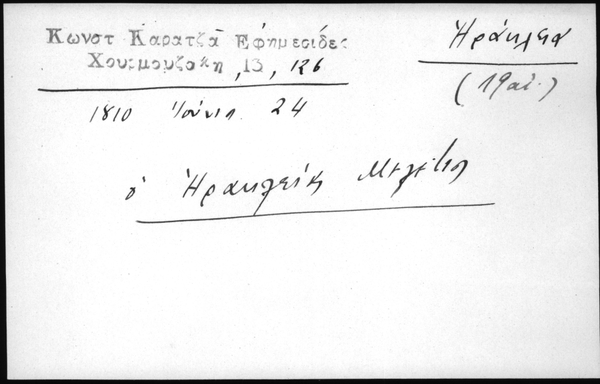 Κωνστ Καρατζᾶ Ἐφημερίδες
Χουρμουζάκη, 13, 126
Ἡράκλεια
(19 αἰ.)
1810 Ἰούνιο 24
ὁ Ἡρακλείας Μελέτιος